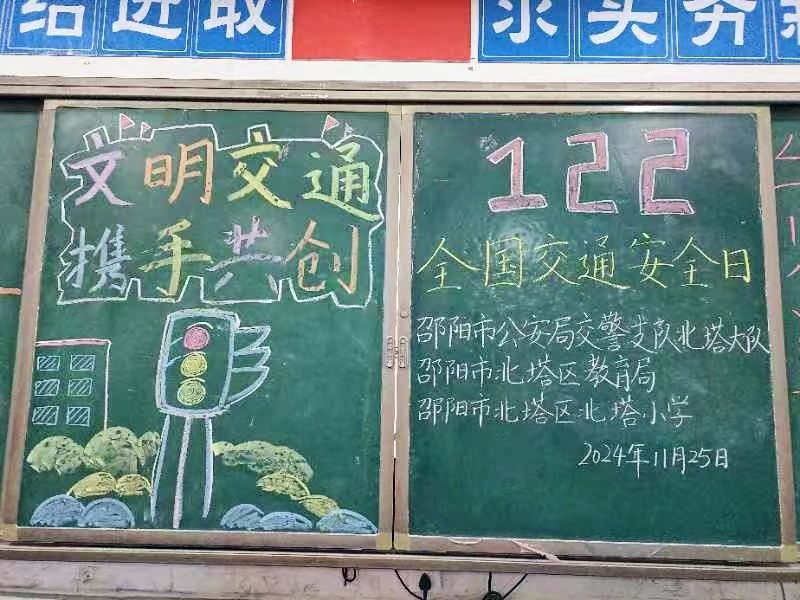 结进取
求实 夯
文明交通
携手共创
122
全国交通安全日
邵阳市公安局交警支队北塔大队
邵阳市北塔区教育局
邵阳市北塔区北塔小学
2024年11月25日